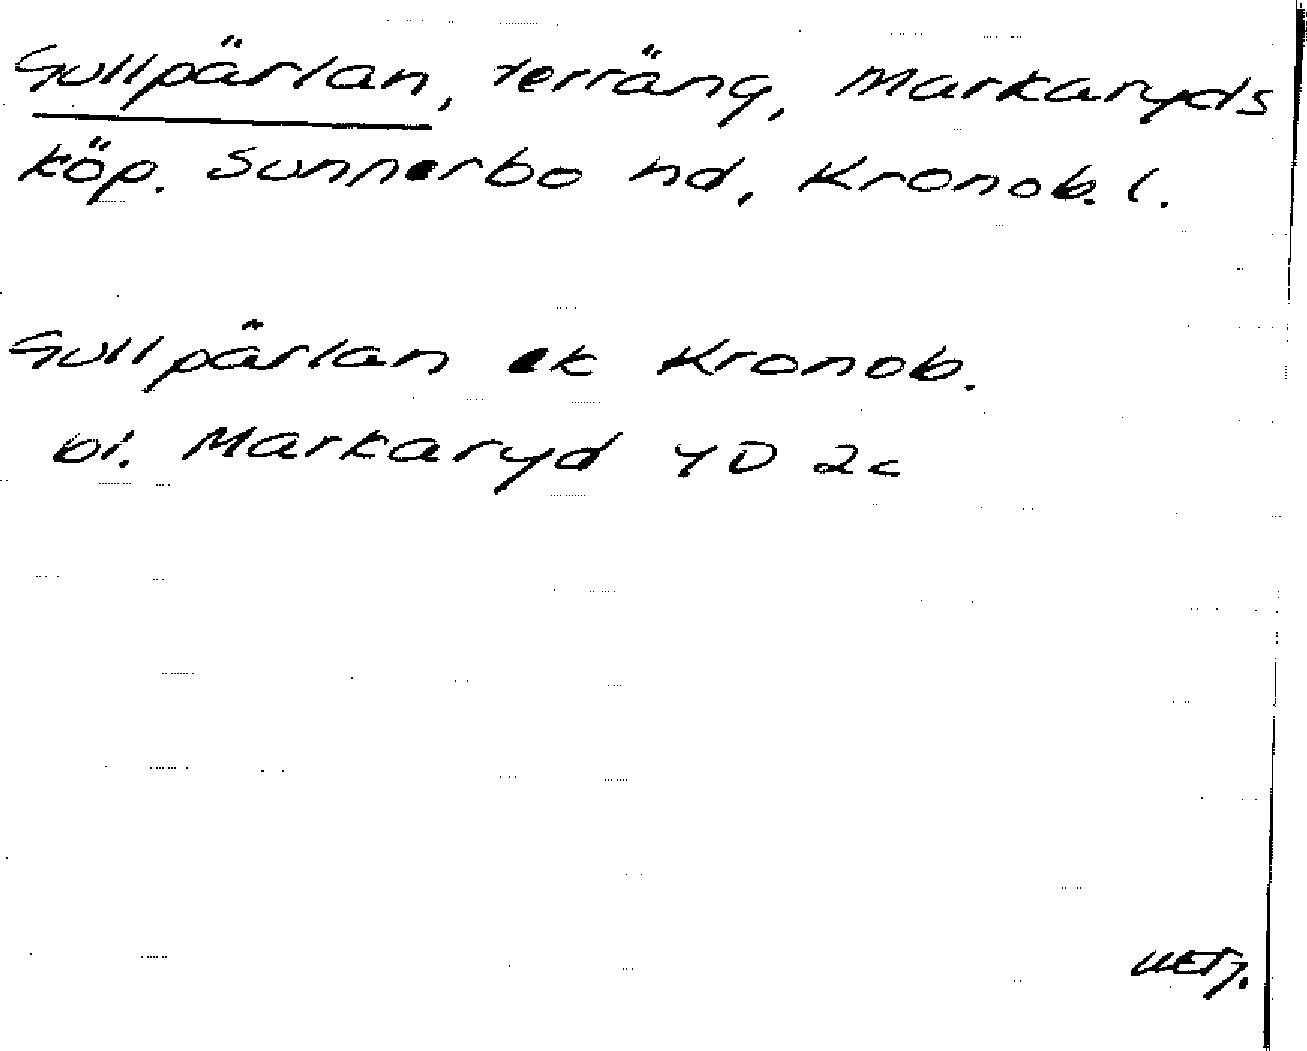 Gullpärlan, terräng, Markaryds
köp. Sunnerbo hd, Kronob. l.
Gullpärlan ek Kronob.
bl. Markaryd 4D 2c